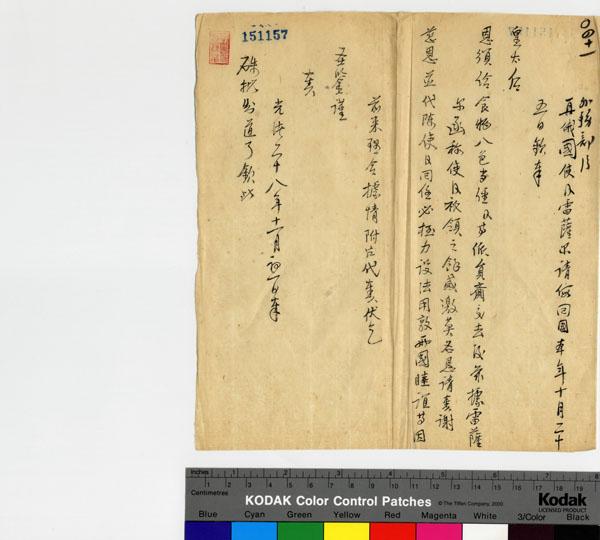 151157
外務部片
再俄國使臣雷薩尔請假回國本年十月二十
五日欽奉
皇太后
恩頒給食物八色當經臣等派員齎交去後茲據雷薩
尔函稱使臣祇領之餘感激莫名懇請奏謝
慈恩並代陳使臣回任必極力設法用敦兩國睦誼等因
前來理合據情附片代奏伏乞
聖鑒謹
奏
光緒二十八年十一月初一日奉
硃批知道了欽此
Inches 1 2 3 4 5 6 7 8
Centimetres
KODAK Color Control Patches
© The Tiffen Company, 2000
Kodak
LICENSED PRODUCT
Blue Cyan Green Yellow Red Magenta White 3/Color Black